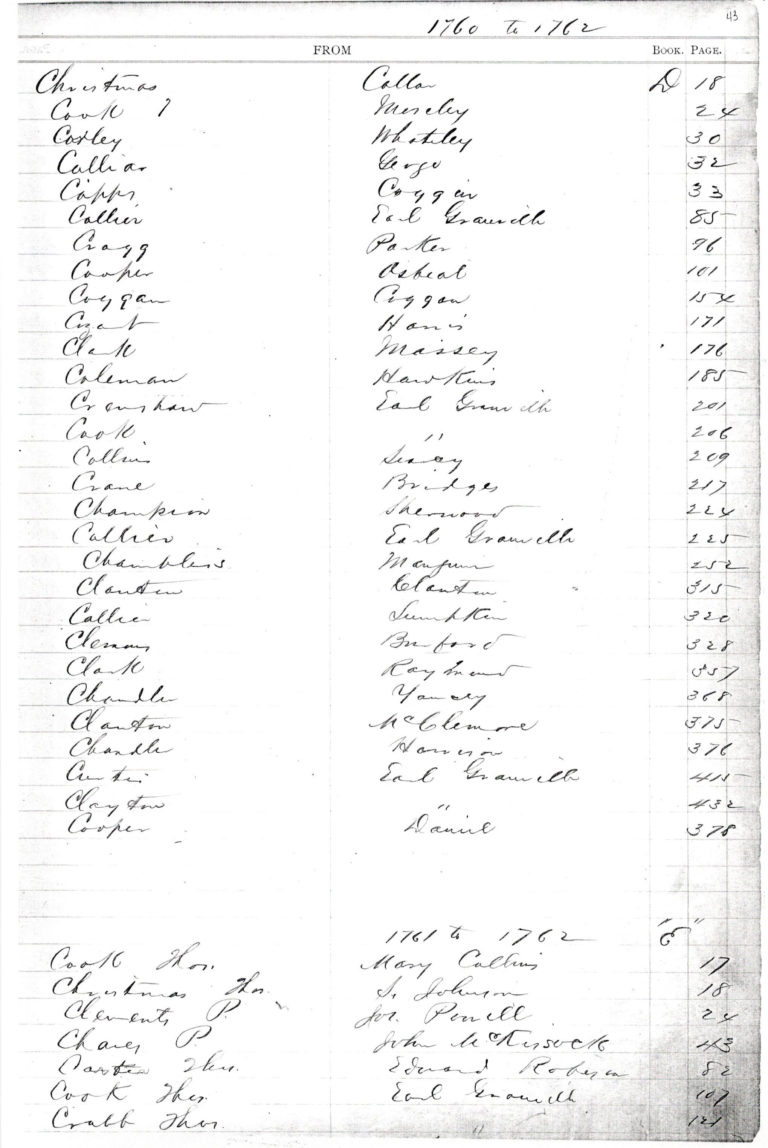 43
1760 to 1762
FROM BOOK. PAGE.
Christmas Collar D 18
Cook Moseley 24
Corley Whateley 30
Colliar George 32
Capps Coggin 33
Collier Earl Granville 85
Cragg Parker 96
Cooper Osbeal 101
Coggan Coggan 154
Harris 171
Clark Massey 176
Coleman Hawkins 185
Crenshaw Earl Granville 201
Cook " 206
Collins Searcy 209
Crane Bridges 217
Champion Sherwood 224
Collier Earl Granville 225
Chambless Mangum 252
Clanton Clanton 315
Collier Lumpkin 320
Clemons Burford 328
Clark Raymond 357
Chandler Yancey 368
Clanton McClemore 375
Chandler Harrison 376
Curtis Earl Granville 415
Clayton " 432
Cooper Daniel 378
1761 to 1762 "E"
Cook Thos. Mary Collins 17
Christmas Thos. S. Johnson 18
Clements P. Jos. Powell 24
P John McKissock 43
Thos. Edward Roberson 82
Cook Thos. Earl Granville 107
Crabb Thos. " 121